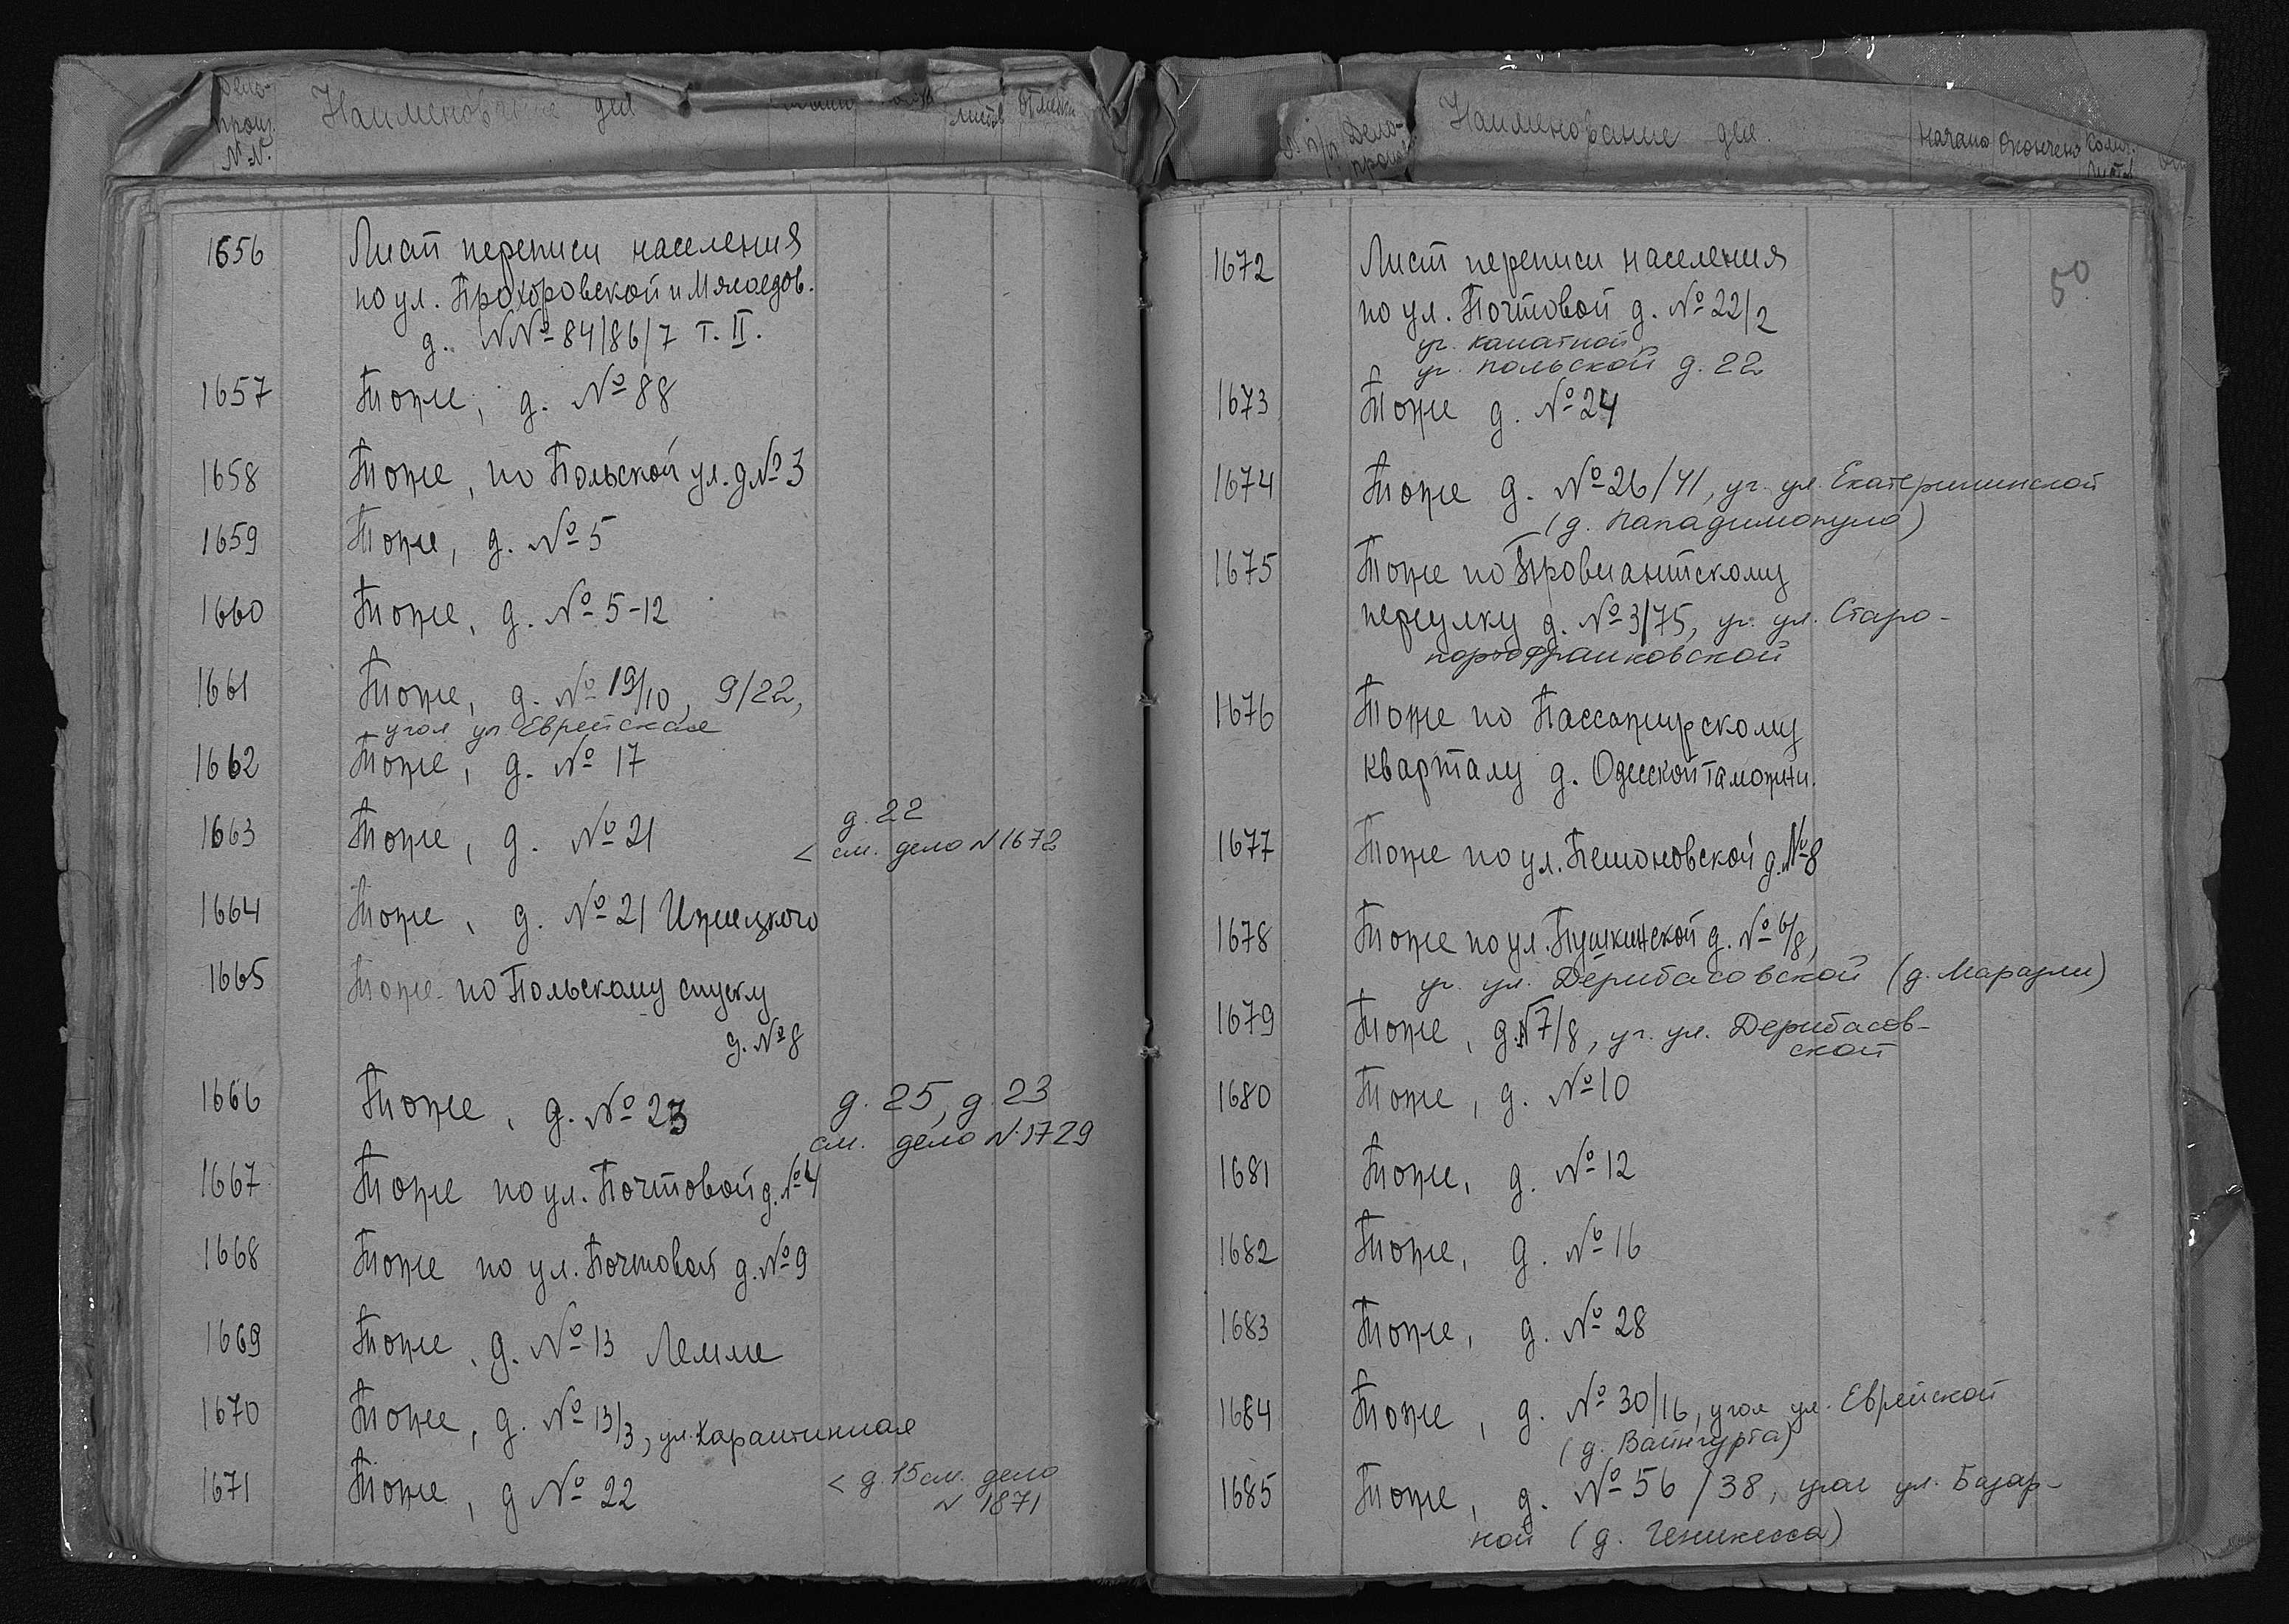 Дело-
произ.
№№
Наименование дел
листов
отметки
1656 Лист переписи населения
по ул. Прохоровской и Мясоедов.
д. №№ 84/86/7 т. II.
1657 Тоже, д. № 88
1658 Тоже, по Польской ул. д№ 3
1659 Тоже, д. № 5
1660 Тоже, д. № 5-12
1661 Тоже, д. № 19/10, 9/22,
угол ул. Еврейская
1662 Тоже, д. № 17
1663 Тоже, д. № 21
д. 22
< см. дело N 1672
1664 Тоже, д. № 21 Ижицкого
1665 Тоже по Польскому спуску
д. № 8
1666 Тоже, д. № 23
д. 25, д. 23
см. дело N 1729
1667 Тоже по ул. Почтовой д. № 4
1668 Тоже по ул. Почтовой д. № 9
1669 Тоже, д. № 13 Лемме
1670 Тоже, д. № 13/3, ул. Карантинная
1671 Тоже, д № 22
< д. 15 см. дело
N 1871
№ п/п
Дело-
произв
Наименование дел.
Начало
Окончено
Колич.
листов
50
1672 Лист переписи населения
по ул. Почтовой д. № 22/2
уг. Канатной
уг. Польской д. 22
1673 Тоже д. № 24
1674 Тоже д. № 26/41, уг. ул. Екатерининской
(д. Пападимопуло)
1675 Тоже по Провиантскому
переулку д. № 3/75, уг. ул. Старо-
портофранковской
1676 Тоже по Пассажирскому
кварталу д. Одесской таможни.
1677 Тоже по ул. Пешоновской д. № 8
1678 Тоже по ул. Пушкинской д. № 6/8,
уг. ул. Дерибасовской (д. Маразли)
1679 Тоже, д. N 7/8, уг. ул. Дерибасов-
ской
1680 Тоже, д. № 10
1681 Тоже, д. № 12
1682 Тоже, д. № 16
1683 Тоже, д. № 28
1684 Тоже, д. № 30/16, угол ул. Еврейской
(д. Вайнгурта)
1685 Тоже, д. № 56/38, угол ул. Базар-
ной (д. Геникесса)